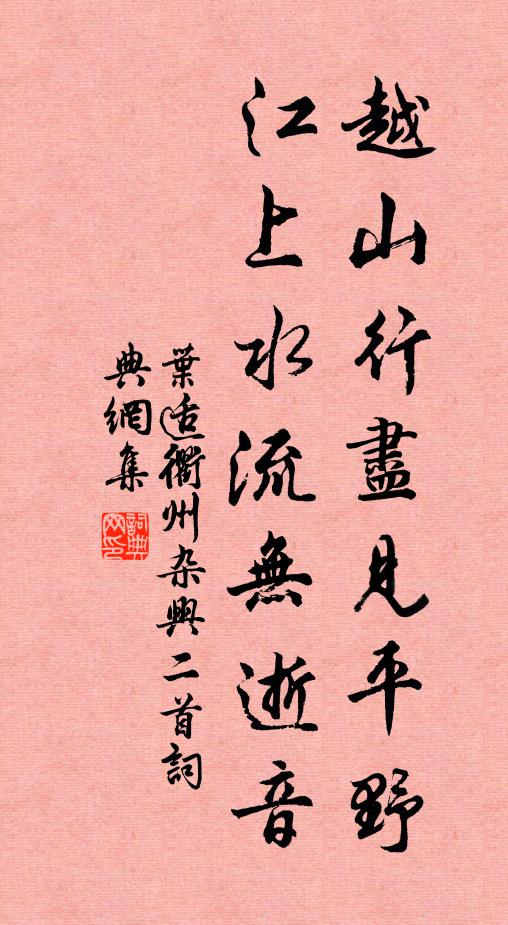 越山行盡見平野
江上水流無逝音
葉适衢州杂興二首詞
典網集
詞典
网印